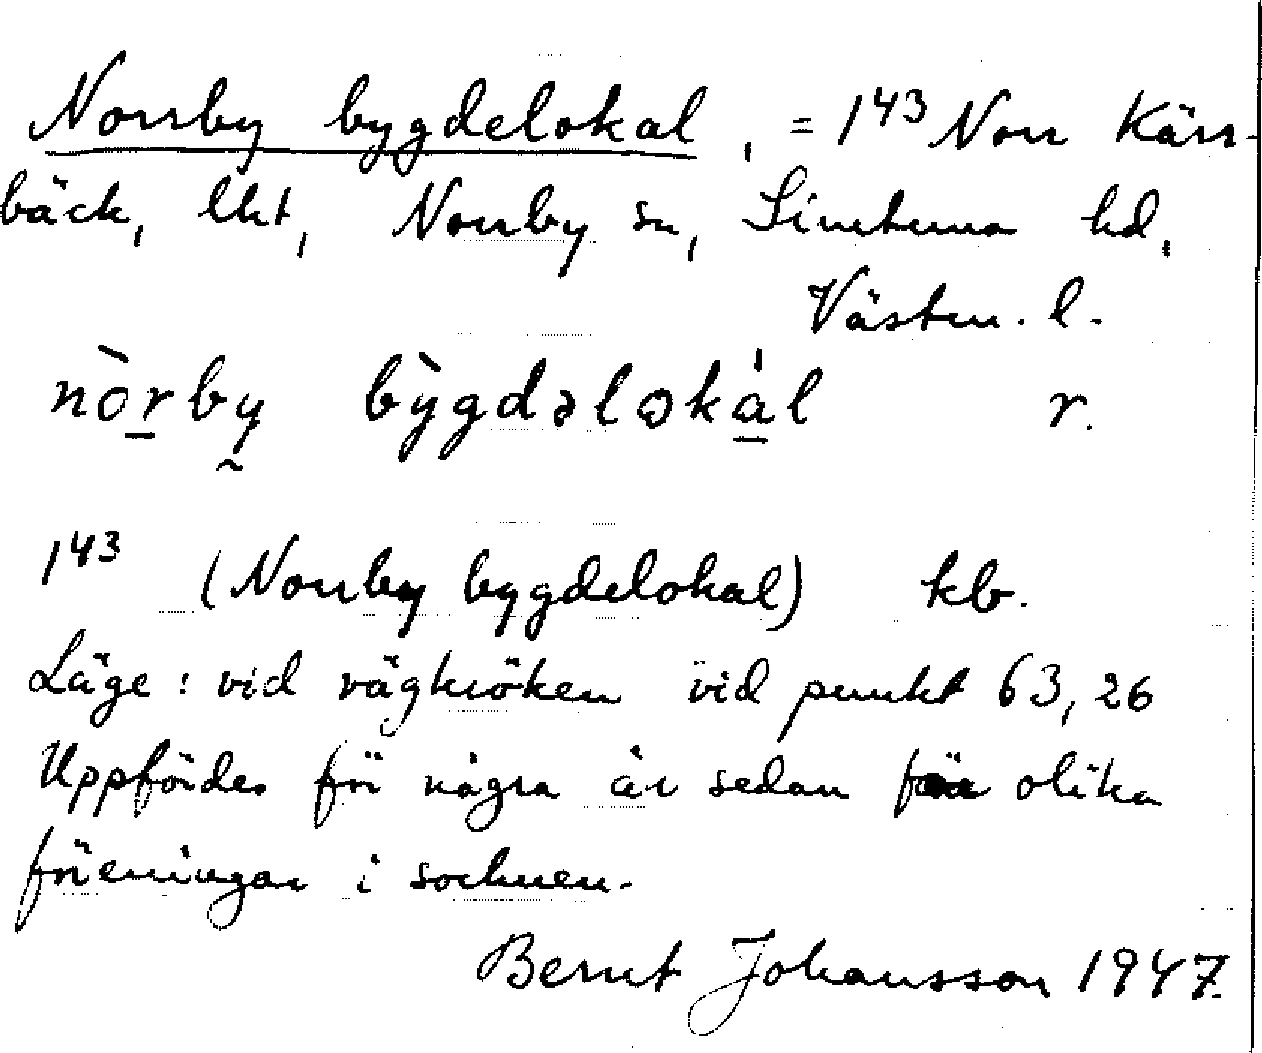 Norrby bygdelokal, = 1⁴³ Norr Kärr-
bäck, lht, Norrby sn, Simtuna hd,
Västm. l.
nòrby bỳgdəlokál r.
1⁴³ (Norrby bygdelokal) kb.
Läge: vid vägkröken vid punkt 63,26
Uppfördes för några år sedan för olika
föreningar i socknen.
Bernt Johansson 1947.